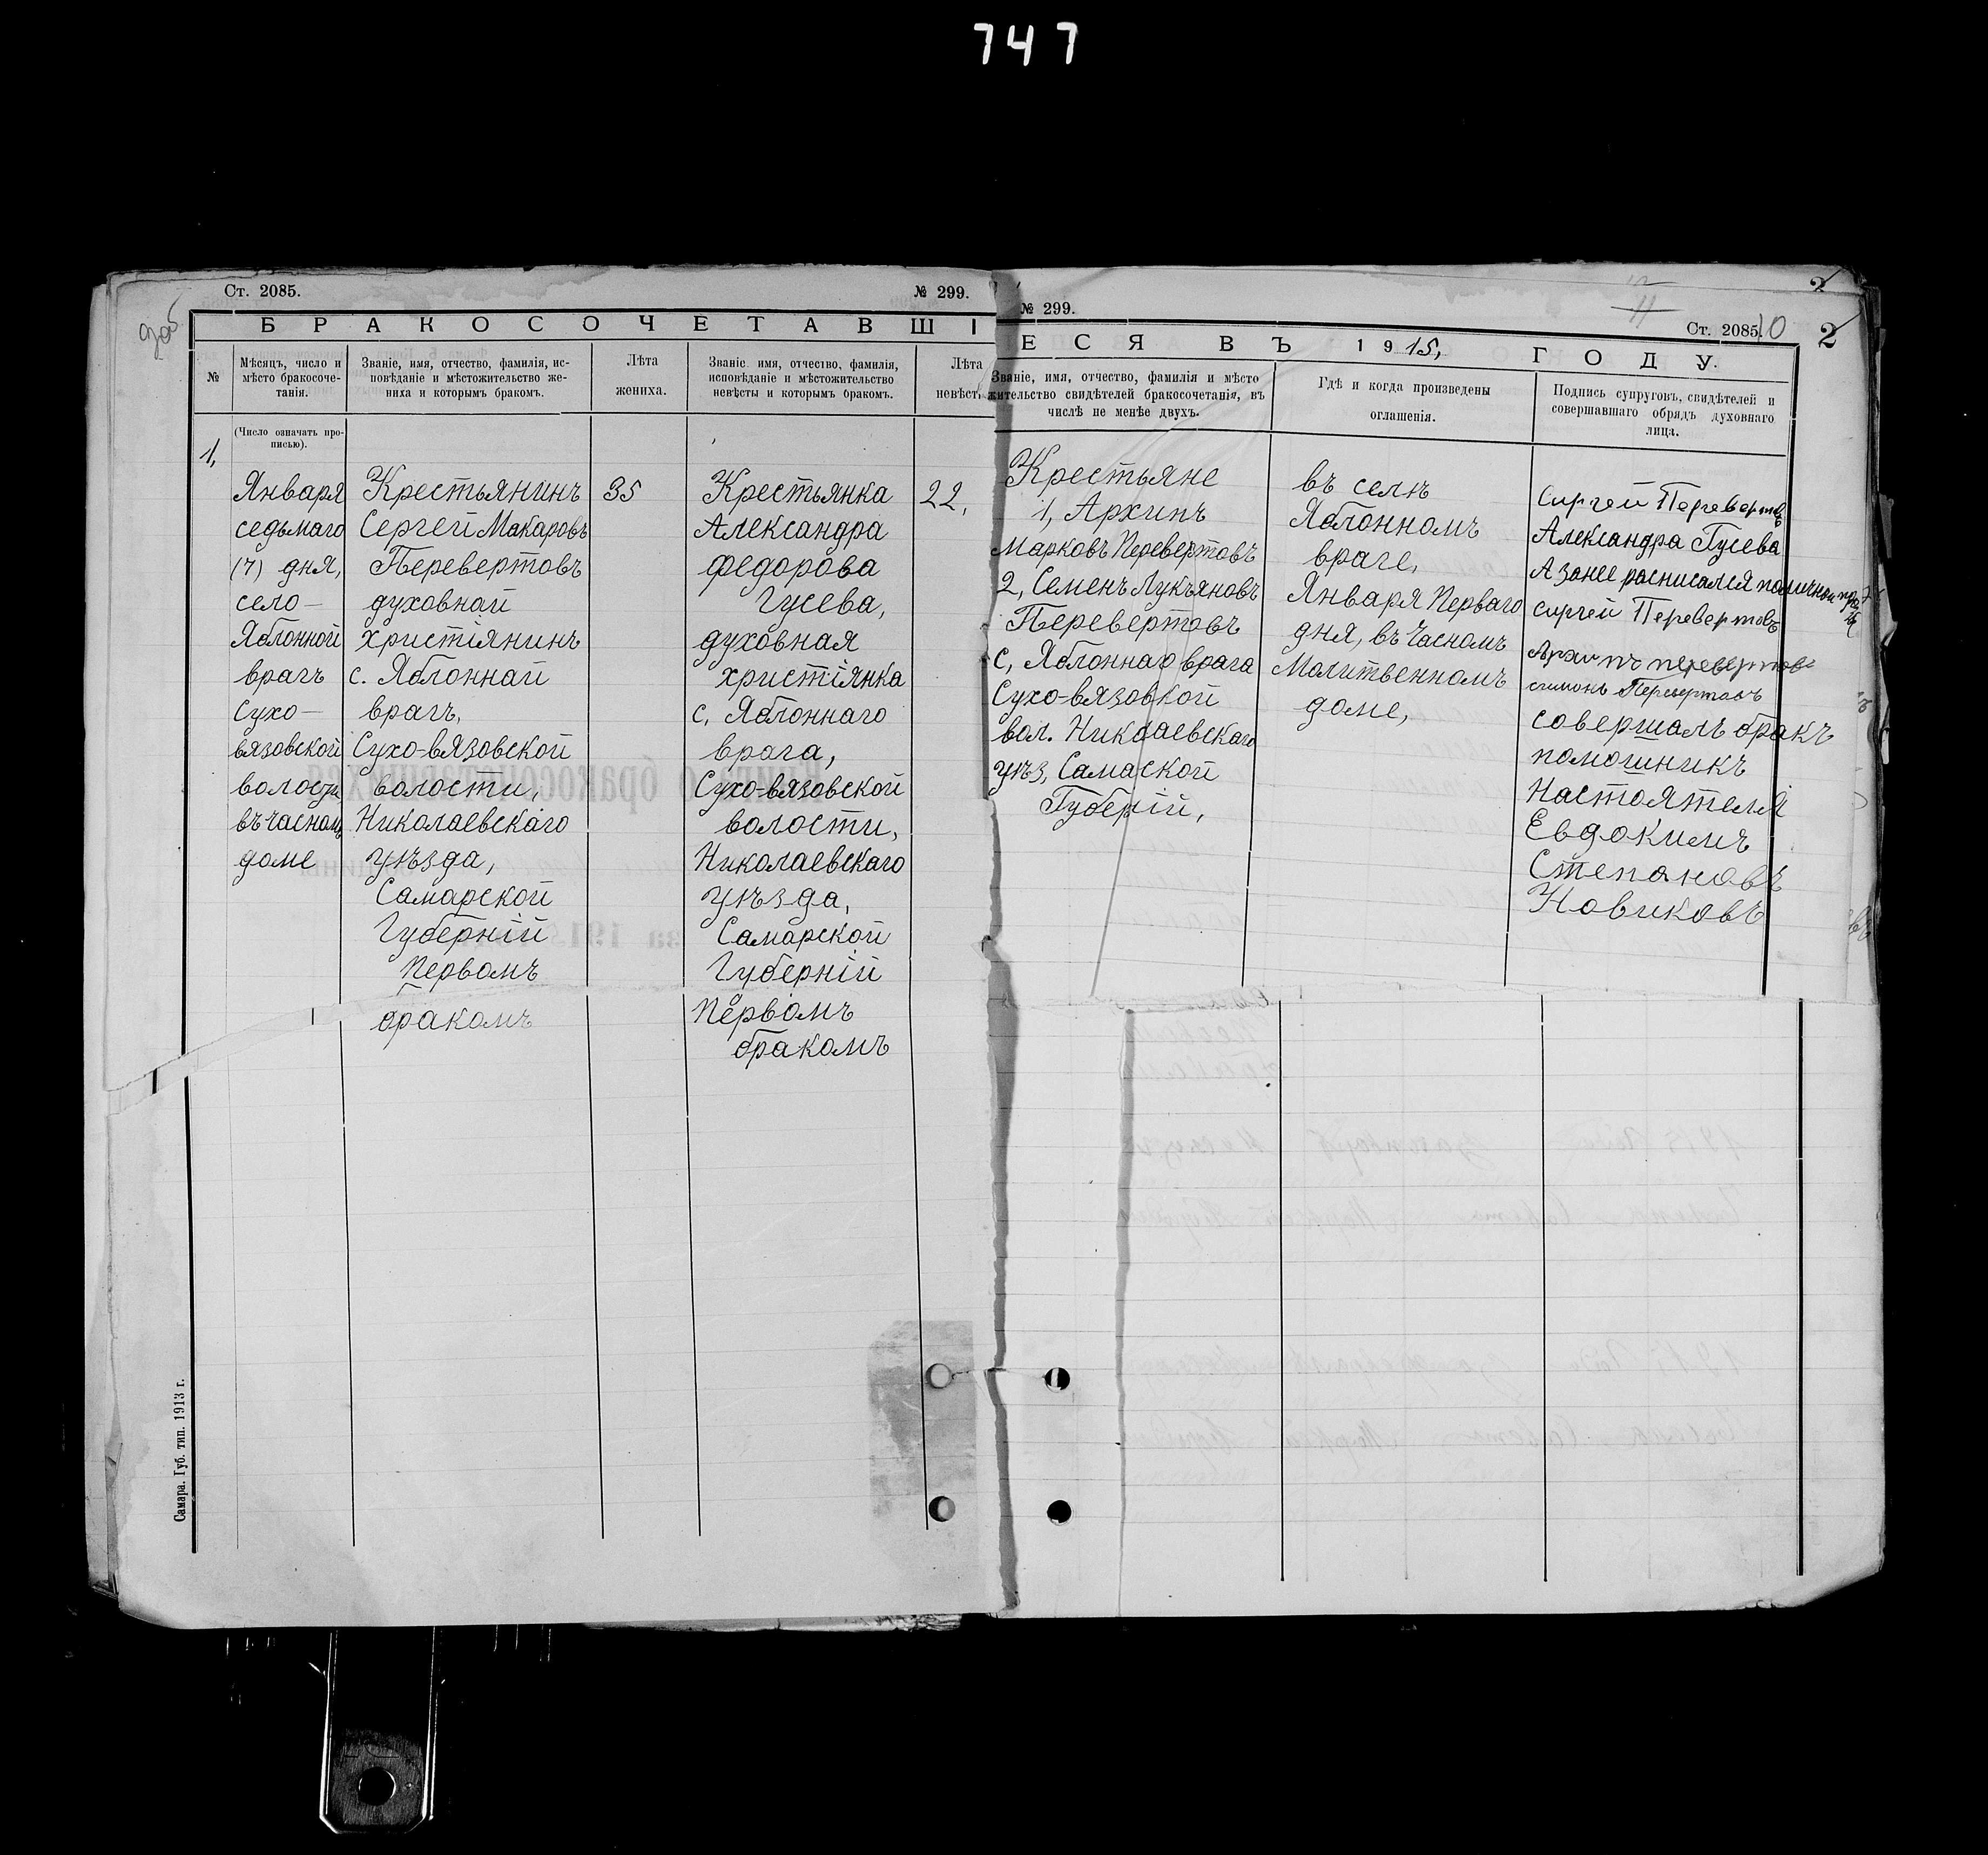 747
Ст. 2085.
№ 299.
БРАКОСОЧЕТАВШІ
№
Мѣсяцъ, число и
мѣсто бракосоче-
танія.
Званіе, имя, отчество, фамилія, ис-
повѣданіе и мѣстожительство же-
ниха и которымъ бракомъ.
Лѣта
жениха.
Званіе имя, отчество, фамилія,
исповѣданіе и мѣстожительство
невѣсты и которымъ бракомъ.
Лѣта
невѣст.
(Число означать про-
писью).
1,
Января
седьмаго
(7) дня,
село-
Яблонной
врагъ
Сухо-
вязовской
волости
въ часном
доме
Крестьянинъ
Сергей Макаровъ
Перевертовъ
духовнай
христіянинъ
с. Яблоннай
врагъ,
Сухо-вязовской
волости,
Николаевскаго
уѣзда,
Самарской
Губерній
Первомъ
бракомъ
35
Крестьянка
Александра
Федорова
Гусева,
духовная
христіянка
с, Яблоннаго
врага,
Сухо-вязовской
волости,
Николаевскаго
уѣзда,
Самарской
Губерній
Первомъ
бракомъ
22,
Самара. Губ. тип. 1913 г.
№ 299.
Ст. 2085.
10
2
2
ЕСЯ ВЪ 1915, ГОДУ.
Званіе, имя, отчество, фамилія и мѣсто
жительство свидѣтелей бракосочетанія, въ
числѣ не менѣе двухъ.
Гдѣ и когда произведены
оглашенія.
Подпись супруговъ, свидѣтелей и
совершавшаго обрядъ духовнаго
лица.
Крестьяне
1, Архипъ
Марковъ Перевертовъ
2, Семенъ Лукъяновъ
Перевертовъ
с, Яблоннаго врага
Сухо-вязовкой
вол. Николаевскаго
уѣз, Самаской
Губерій,
въ селѣ
Яблонномъ
враге,
Января Перваго
дня, въ Часномъ
Молитвенномъ
доме,
Сиргей Перевертовъ
Александра Гусева
А занее росписался
Сиргей Перевертовъ
Архипъ перевертовъ
Перевертовъ
совершалъ бракъ
помошникъ
Настоятеля
Евдокимъ
Степановъ
Новиковъ